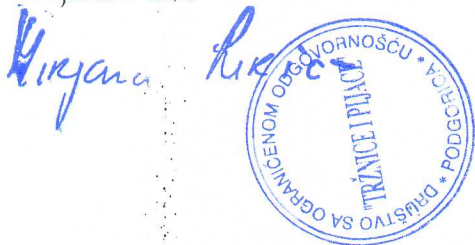 Mirjana
DRUŠTVO SA OGRANIČENOM ODGOVORNOŠĆU * PODGORICA *
"TRŽNICE I PIJACE"